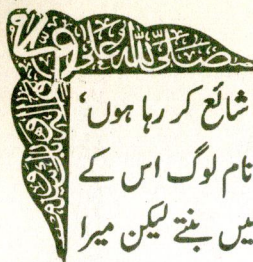 صلى الله على
شائع کر رہا ہوں‘
نام لوگ اس کے
یں بنتے لیکن میرا